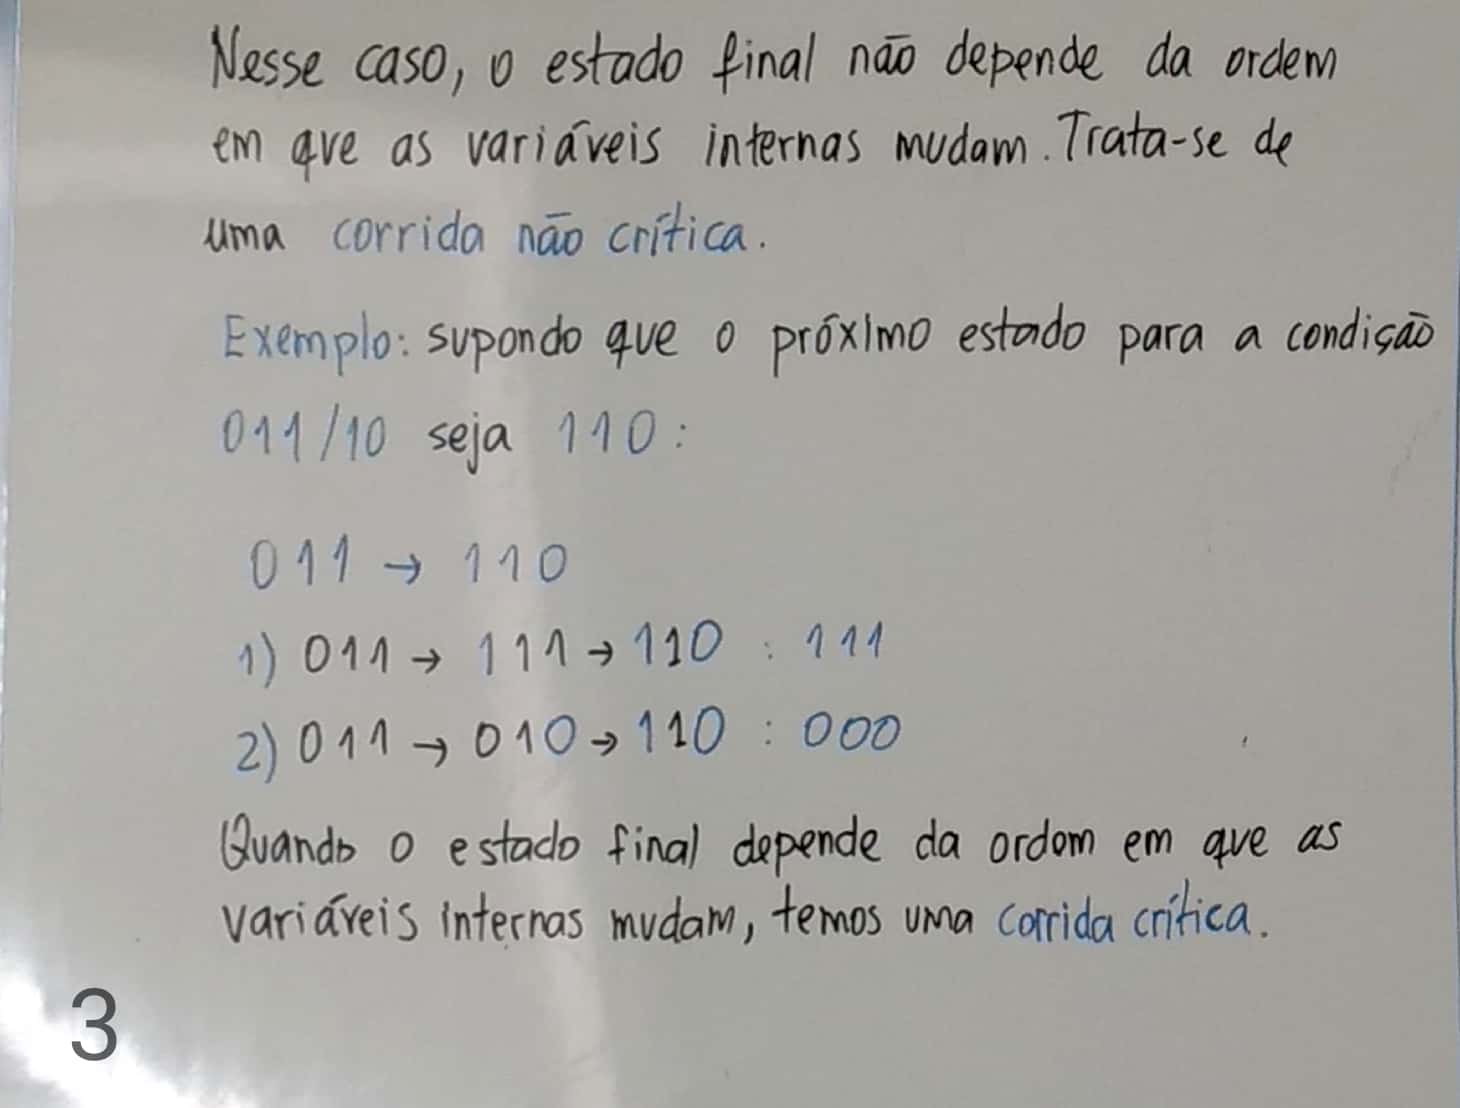 Nesse caso, o estado final não depende da ordem
em que as variáveis internas mudam. Trata-se de
uma corrida não crítica.
Exemplo: supondo que o próximo estado para a condição
011/10 seja 110:
011 → 110
1) 011 → 111 → 110 : 111
2) 011 → 010 → 110 : 000
Quando o estado final depende da ordem em que as
variáveis internas mudam, temos uma corrida crítica.
3